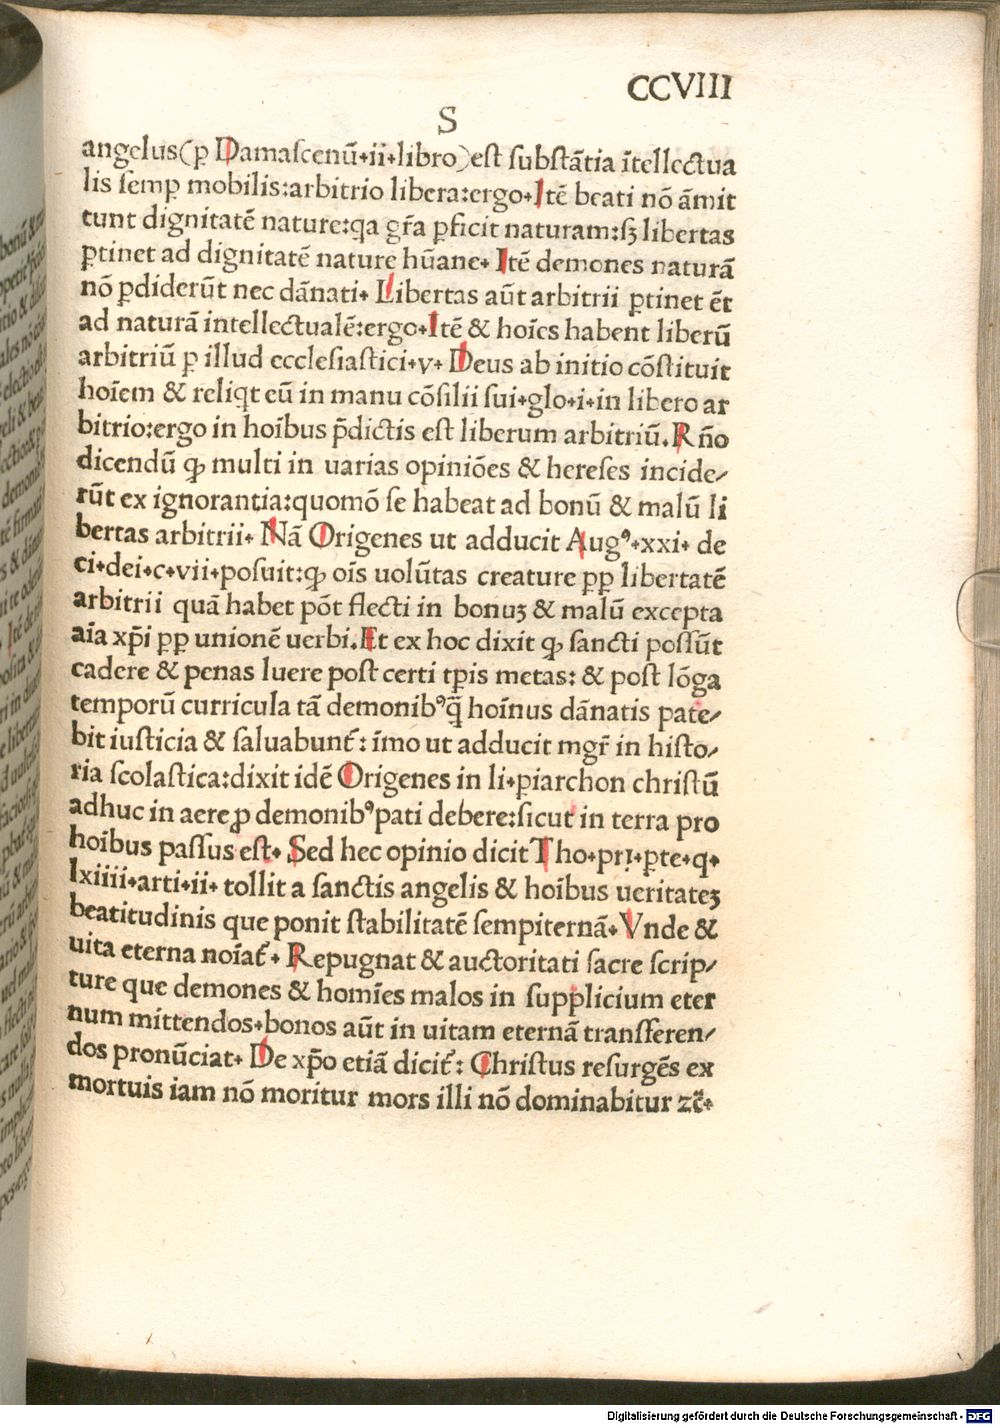 CCVIII
S
angelus(ꝑ Damascenū.ii.libro)est substātia ītellectua
lis semꝑ mobilis:arbitrio libera:ergo.Itē beati nō āmit
tunt dignitatē nature:qa gr̄a ꝑficit naturam:sꝫ libertas
ꝑtinet ad dignitatē nature hūane. Itē demones naturā
nō ꝑdiderūt nec dānati. Libertas aūt arbitrii ꝑtinet ēt
ad naturā intellectualē:ergo.Itē & hoīes habent liberū
arbitriū ꝑ illud ecclesiastici.v. Deus ab initio cōstituit
hoīem & reliqt eū in manu cōsilii sui.glo.i.in libero ar
bitrio:ergo in hoībus p̄dictis est liberum arbitriū. R ño
dicendū ꝙ multi in uarias opiniōes & hereses incide⸗
rūt ex ignorantia:quomō se habeat ad bonū & malū li
bertas arbitrii. Nā Origenes ut adducit Augꝰ.xxi. de
ci.dei.c.vii.posuit:ꝙ oīs uolūtas creature ꝓp libertatē
arbitrii quā habet pōt flecti in bonuꝫ & malū excepta
aīa xp̄i ꝓp unionē uerbi. Et ex hoc dixit ꝙ sancti possūt
cadere & penas luere post certi tꝑis metas: & post lōga
temporū curricula tā demonibꝰ q̄ hoīnus dānatis pate⸗
bit iusticia & saluabunt᷑: īmo ut adducit mgr̄ in histo⸗
ria scolastica:dixit idē Origenes in li.piarchon christū
adhuc in aere ꝓ demonibꝰ pati debere:sicut in terra pro
hoībus passus est. Sed hec opinio dicit Tho.pri.ꝑte.q.
lxiiii.arti.ii. tollit a sanctis angelis & hoībus ueritateꝫ
beatitudinis que ponit stabilitatē sempiternā. Vnde &
uita eterna noīat᷑. Repugnat & auctoritati sacre scrip⸗
ture que demones & homīes malos in supplicium eter
num mittendos.bonos aūt in uitam eternā transferen⸗
dos pronūciat. De xp̄o etiā dicit᷑: Christus resurgēs ex
mortuis iam nō moritur mors illi nō dominabitur zc̄.
Digitalisierung gefördert durch die Deutsche Forschungsgemeinschaft - DFG